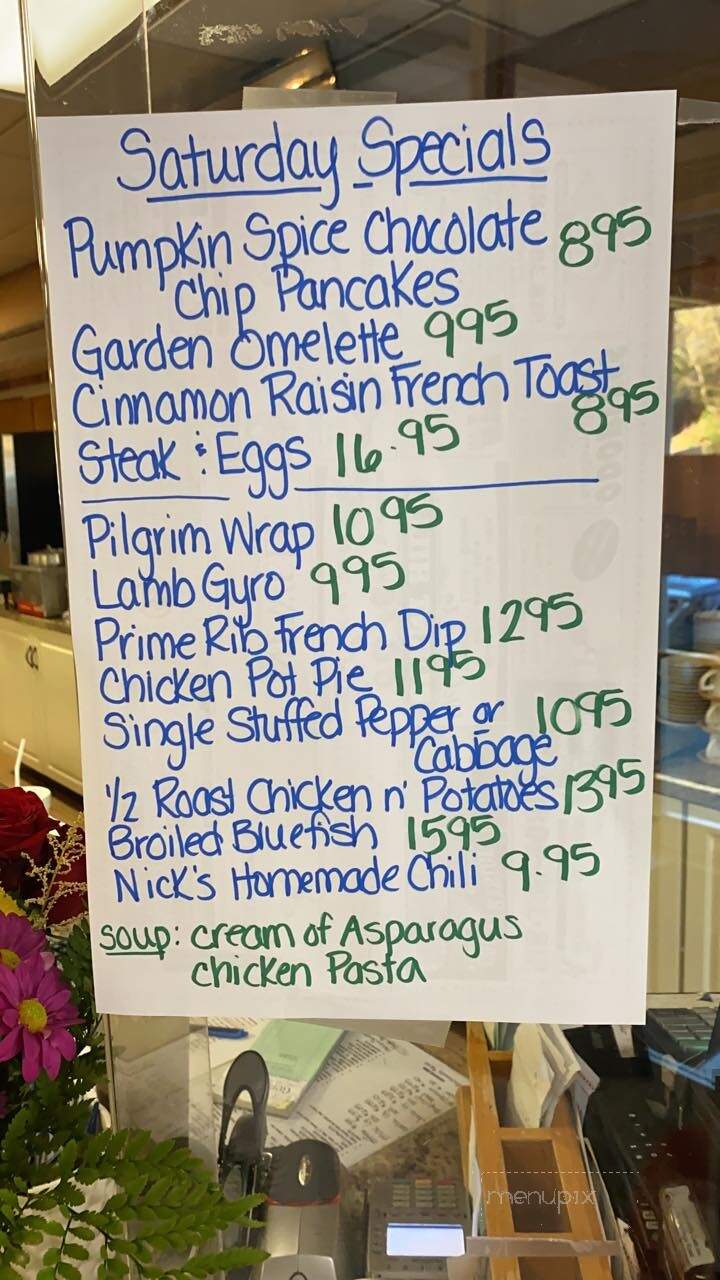 Saturday Specials
Pumpkin Spice Chocolate 895
Chip Pancakes
Garden Omelette 995
Cinnamon Raisin French Toast
895
Steak & Eggs 16.95
Pilgrim Wrap 1095
Lamb Gyro 995
Prime Rib French Dip 1295
Chicken Pot Pie 1195
Single Stuffed Pepper or 1095
Cabbage
1/2 Roast Chicken n' Potatoes 1395
Broiled Bluefish 1595
Nick's Homemade Chili 9.95
Soup: cream of Asparagus
chicken Pasta
menupix